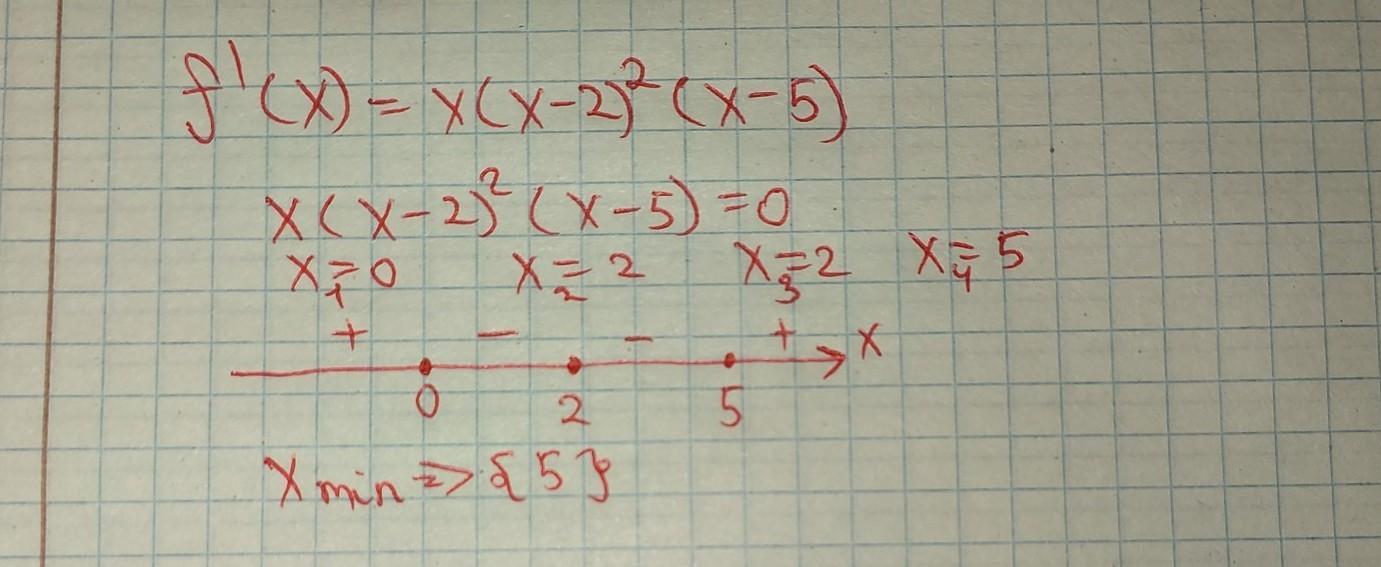 f'(x) = x(x-2)²(x-5)
x(x-2)²(x-5) = 0
x₁ = 0 x₂ = 2 x₃ = 2 x₄ = 5
+ - - + x
0 2 5
x min => {5}